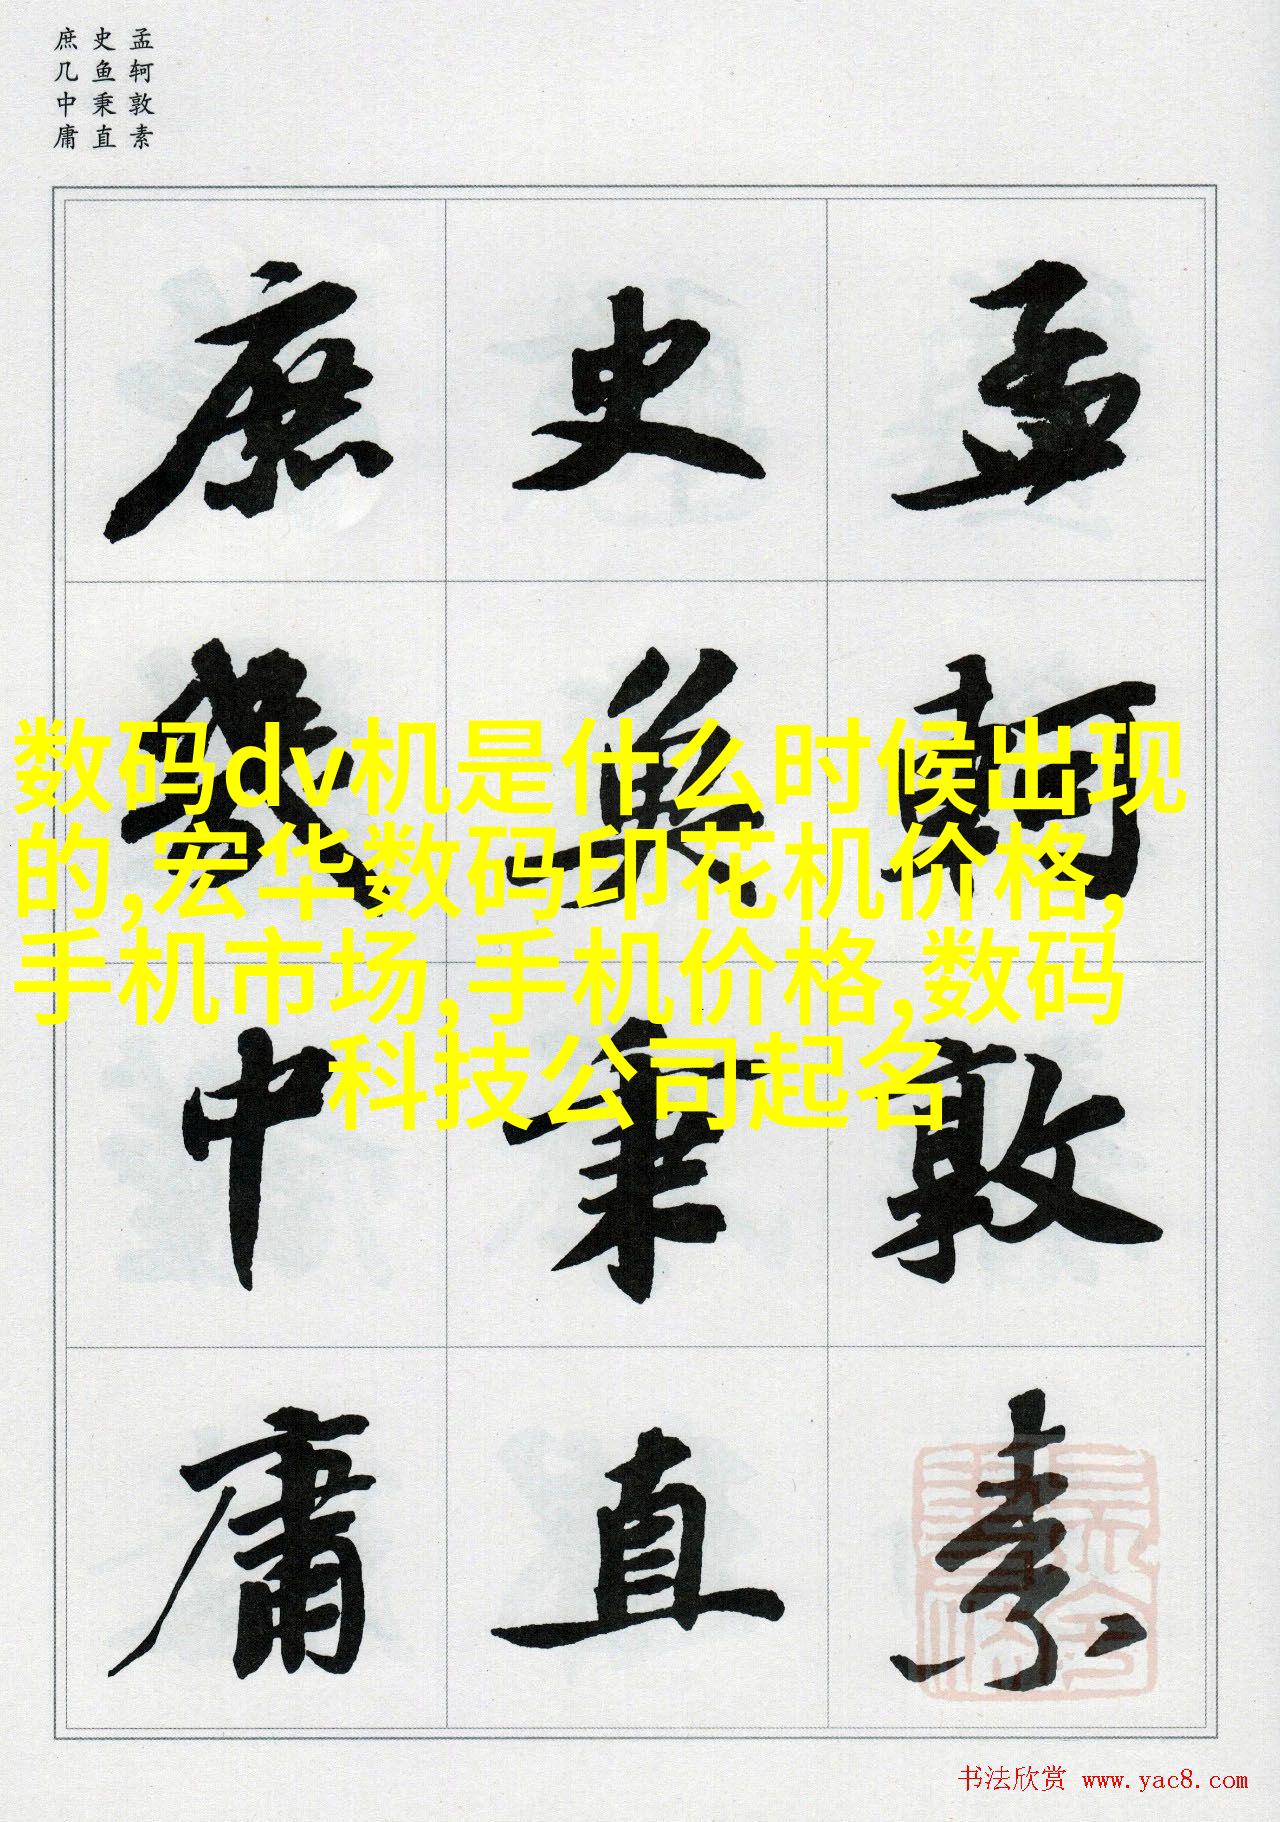 孟轲敦素
史鱼秉直
庶几中庸
孟轲敦素
史鱼秉直
庶几中庸
数码dv机是什么时候出现
的,宏华数码印花机价格,
手机市场,手机价格,数码
科技公司起名
书法欣赏 www.yac8.com